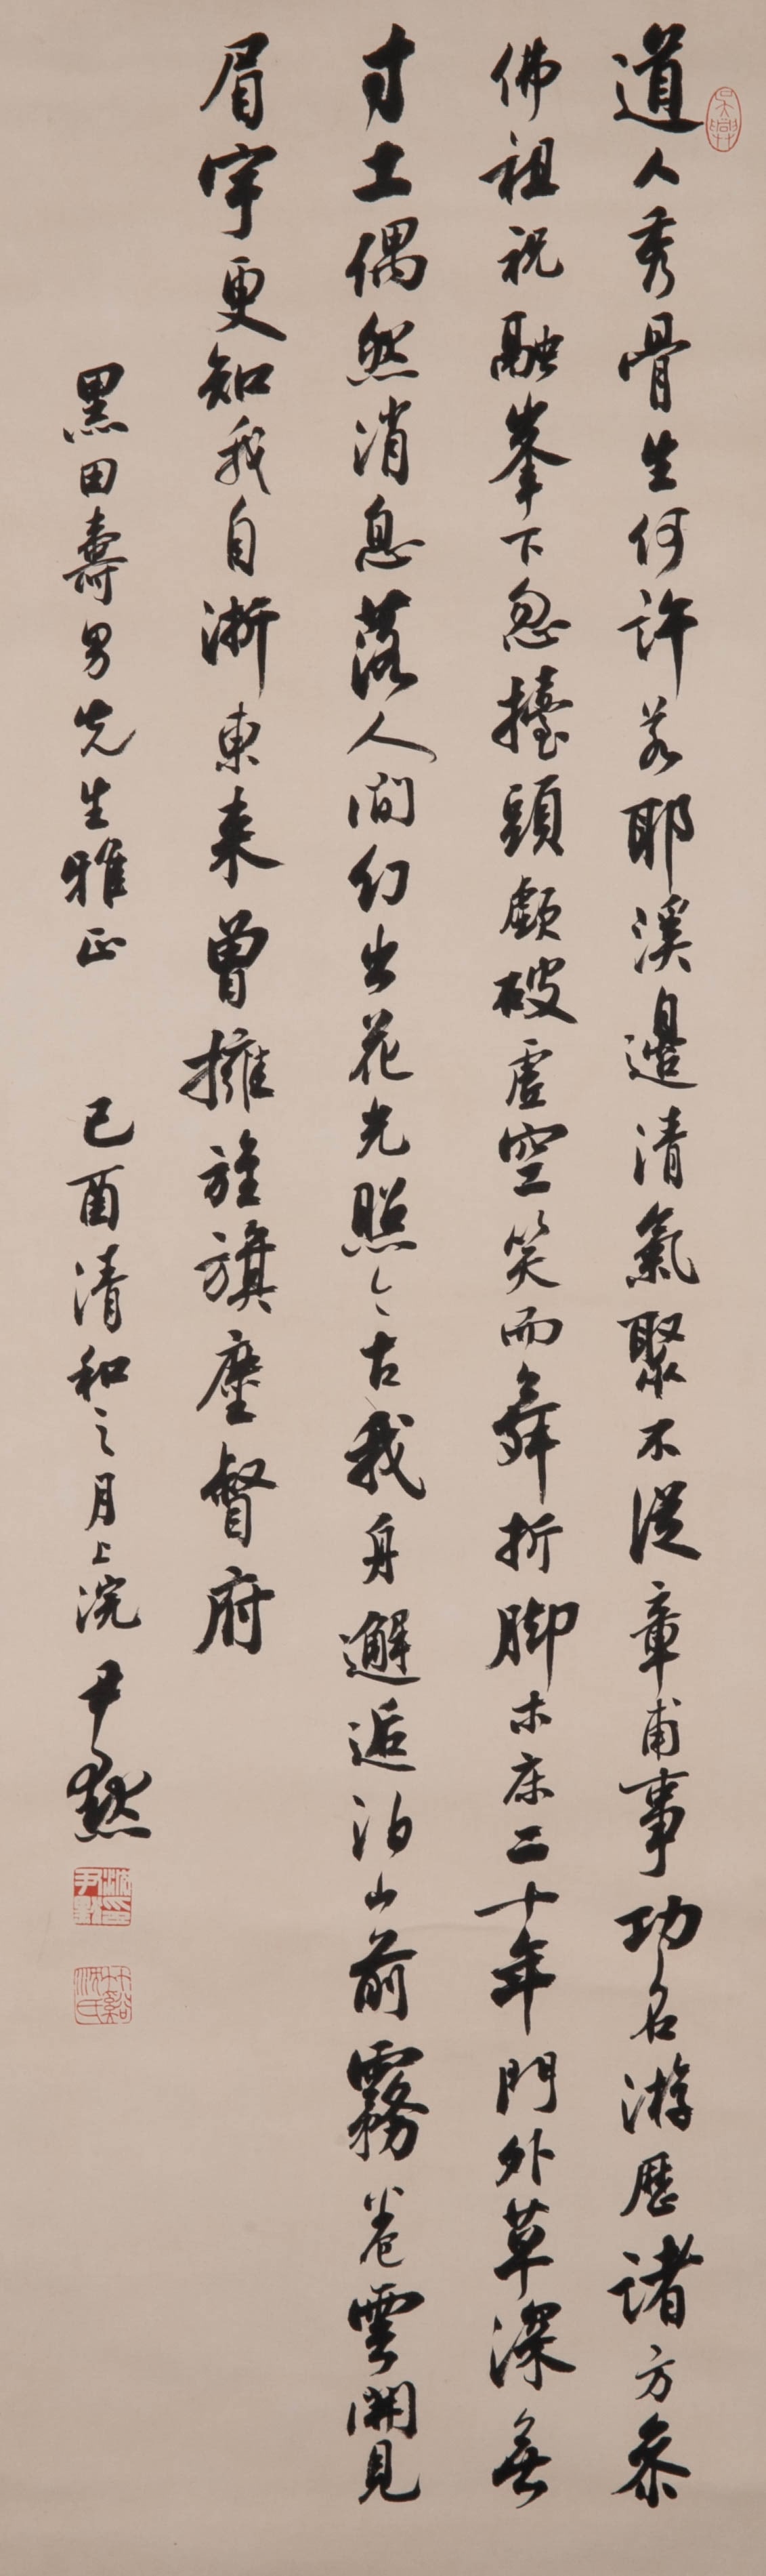 道人秀骨生何許若耶溪邊清氣聚不從章甫事功名游歷諸方參
佛祖祝融峯下忽擡頭觑破虛空笑而舞折脚木床二十年門外草深無
寸土偶然消息落人間幻出花光照今古我舟邂逅泊山前霧卷雲開見
眉宇更知我自浙東来曾擁旌旗塵督府
黑田壽男先生雅正 己酉清和之月上浣 尹默